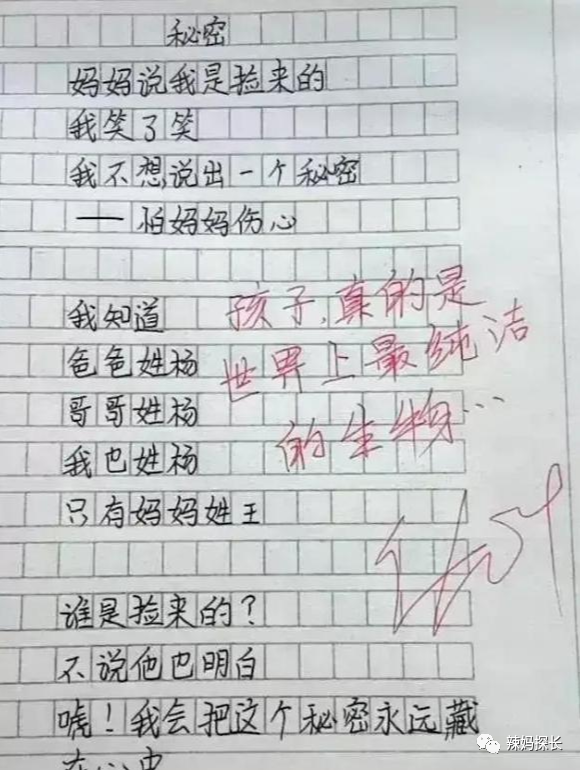 秘密
妈妈说我是捡来的
我笑了笑
我不想说出一个秘密
——怕妈妈伤心
我知道
爸爸姓杨
哥哥姓杨
我也姓杨
只有妈妈姓王
孩子,真的是
世界上最纯洁
的生物…
谁是捡来的?
不说他也明白
唬!我会把这个秘密永远藏
在心中
辣妈探长